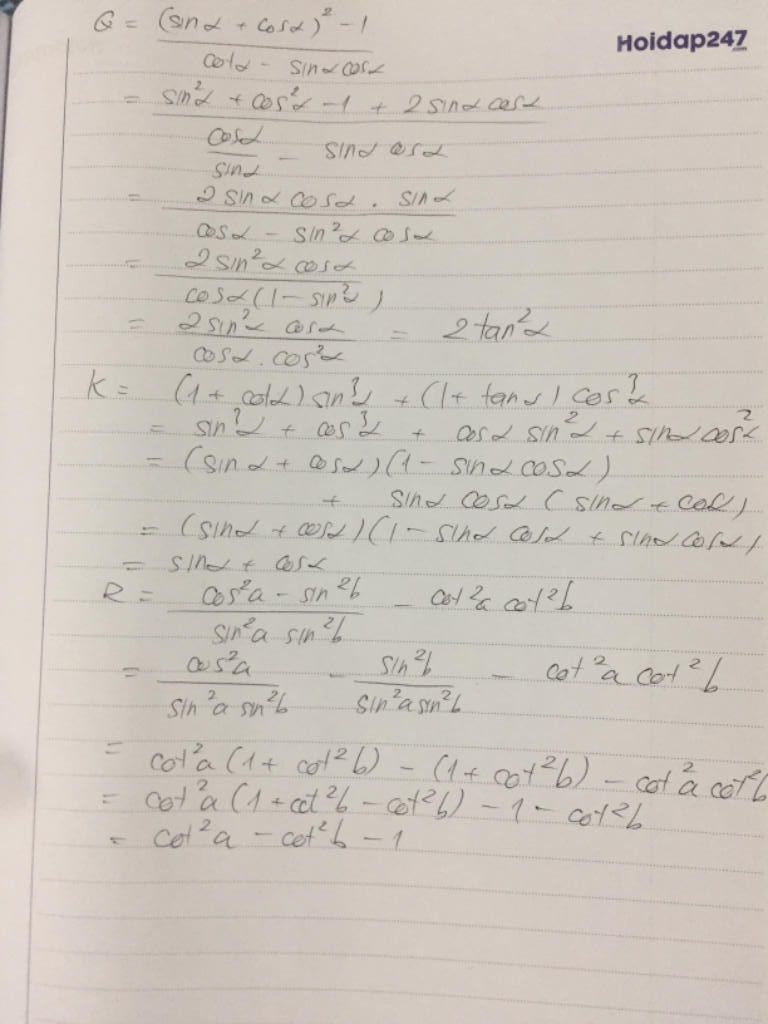 Hoidap247.com
G = (sinα + cosα)² - 1 / cotα - sinαcosα
= sin²α + cos²α - 1 + 2 sinα cosα / cosα/sinα - sinα cosα
= 2 sinα cosα . sinα / cosα - sin²α cosα
= 2 sin²α cosα / cosα(1 - sin²α)
= 2 sin²α cosα / cosα . cos²α = 2 tan²α
K = (1 + cotα) sin³α + (1 + tanα) cos³α
= sin³α + cos³α + cosα sin²α + sinα cos²α
= (sinα + cosα)(1 - sinα cosα)
+ sinα cosα (sinα + cosα)
= (sinα + cosα)(1 - sinα cosα + sinα cosα)
= sinα + cosα
R = cos²a - sin²b / sin²a sin²b - cot²a cot²b
= cos²a / sin²a sin²b - sin²b / sin²a sin²b - cot²a cot²b
= cot²a (1 + cot²b) - (1 + cot²b) - cot²a cot²b
= cot²a (1 + cot²b - cot²b) - 1 - cot²b
= cot²a - cot²b - 1